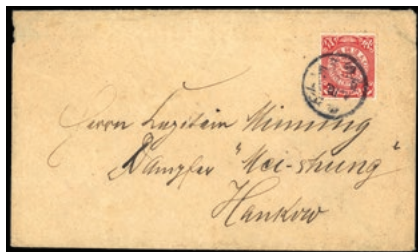 Herrn Kapitain Minnung
Dampfer "Mei-shung"
Hankow